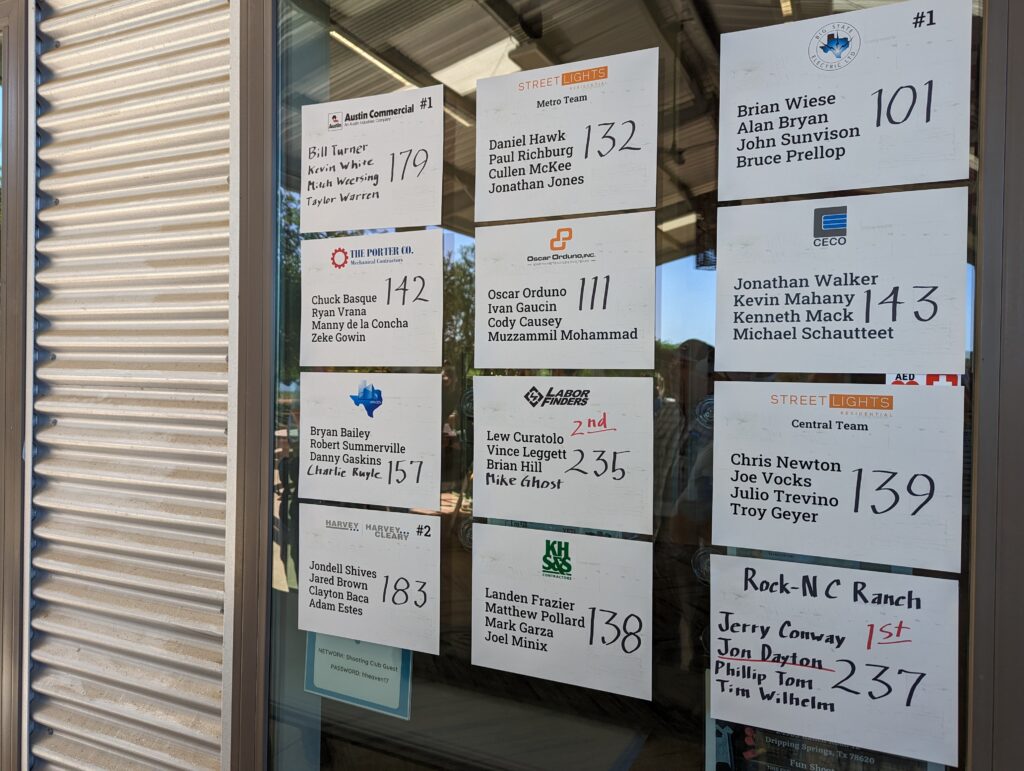 Austin Commercial #1
An Austin Industries Company
Bill Turner
Kevin White
Mitch Weersing
Taylor Warren
179
THE PORTER CO.
Mechanical Contractors
Chuck Basque
Ryan Vrana
Manny de la Concha
Zeke Gowin
142
Bryan Bailey
Robert Summerville
Danny Gaskins
Charlie Ruyle
157
HARVEY HARVEY CLEARY #2
Jondell Shives
Jared Brown
Clayton Baca
Adam Estes
183
NETWORK: Shooting Club Guest
PASSWORD:
STREET LIGHTS
RESIDENTIAL
Metro Team
Daniel Hawk
Paul Richburg
Cullen McKee
Jonathan Jones
132
OSCAR ORDUNO, INC.
Oscar Orduno
Ivan Gaucin
Cody Causey
Muzzammil Mohammad
111
LABOR
FINDERS
2nd
Lew Curatolo
Vince Leggett
Brian Hill
Mike Ghost
235
KH
S&S
CONTRACTORS
Landen Frazier
Matthew Pollard
Mark Garza
Joel Minix
138
#1
BIG STATE
ELECTRIC LTD
Brian Wiese
Alan Bryan
John Sunvison
Bruce Prellop
101
CECO
Jonathan Walker
Kevin Mahany
Kenneth Mack
Michael Schautteet
143
AED
STREET LIGHTS
RESIDENTIAL
Central Team
Chris Newton
Joe Vocks
Julio Trevino
Troy Geyer
139
Rock-N C Ranch
Jerry Conway
Jon Dayton
Phillip Tom
Tim Wilhelm
1st
237
Dripping Springs, Tx 78620
Fun Shoot